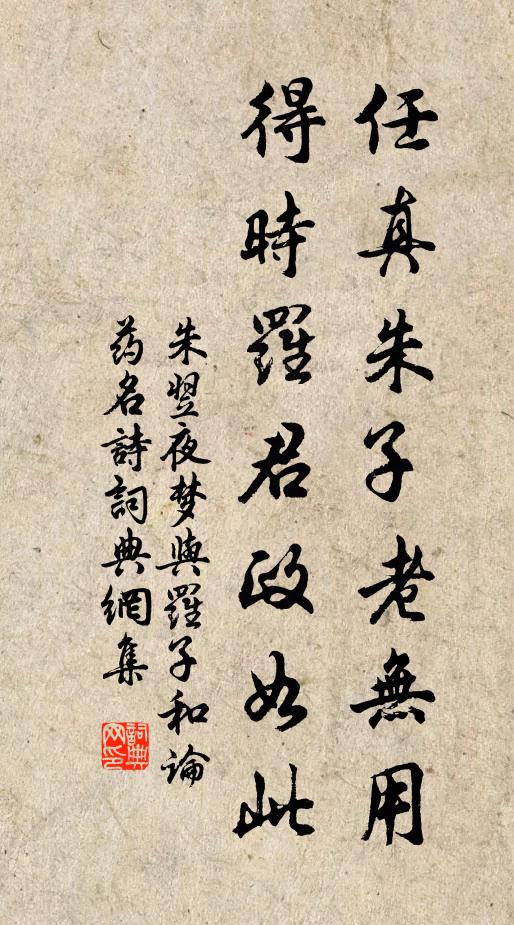 任真朱子老無用
得時羅君政如此
朱翌夜梦與羅子和論
药名詩詞典網集
詞典網印